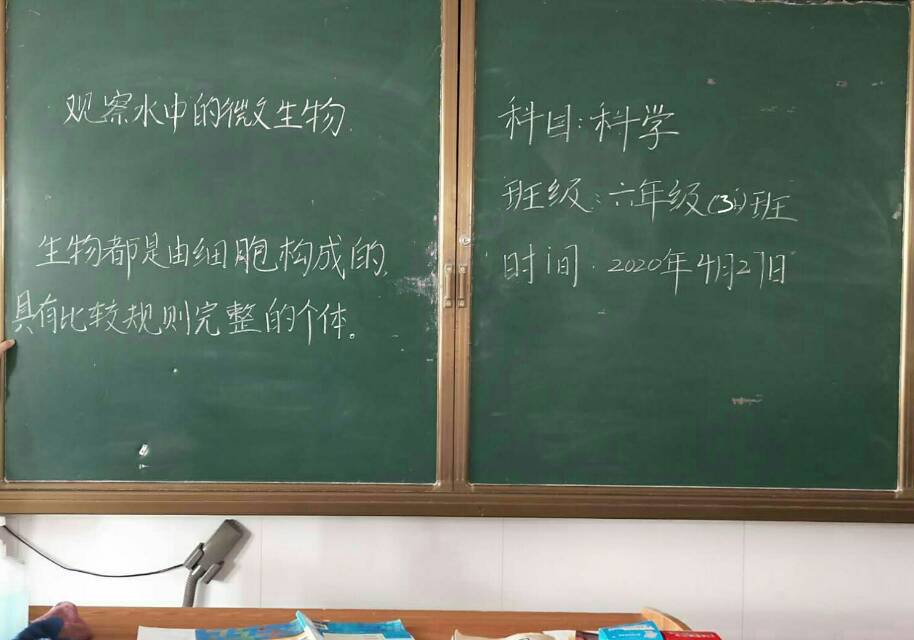 观察水中的微生物.
生物都是由细胞构成的,
具有比较规则完整的个体。
科目:科学
班级:六年级(3)班
时间.2020年4月27日